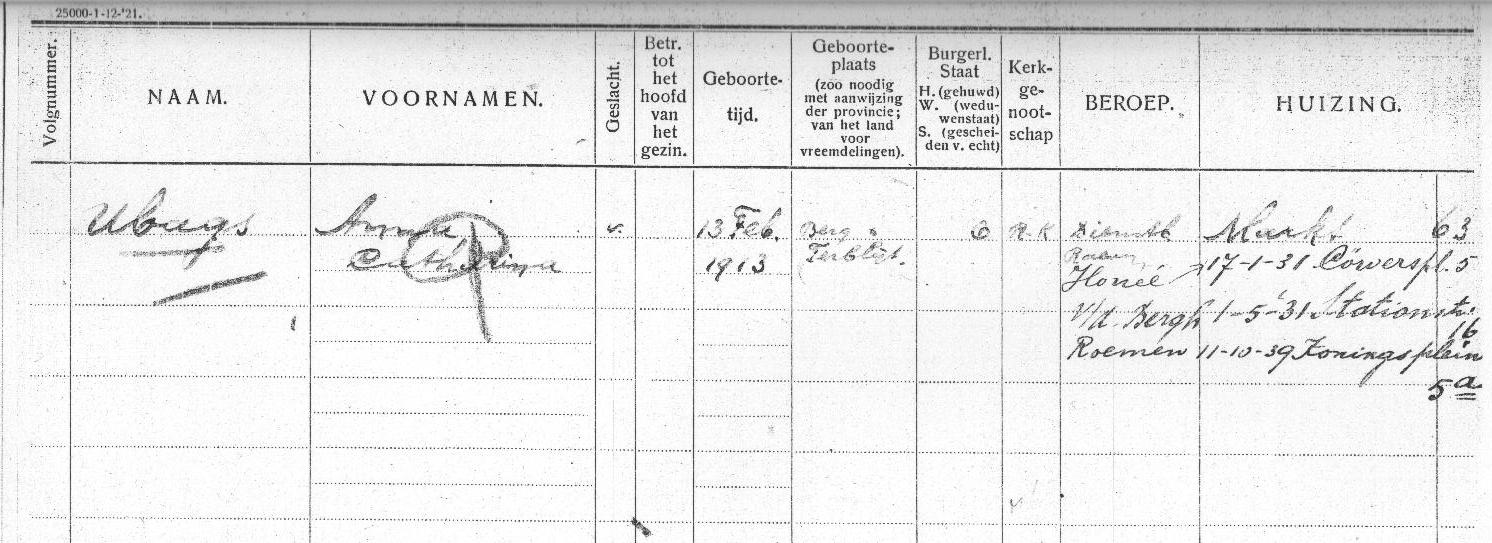 25000-1-12-'21.
Volgnummer.
NAAM.
VOORNAMEN.
Geslacht.
Betr.
tot
het
hoofd
van
het
gezin.
Geboorte-
tijd.
Geboorte-
plaats
(zoo noodig
met aanwijzing
der provincie;
van het land
voor
vreemdelingen).
Burgerl.
Staat
H. (gehuwd)
W. (wedu-
wenstaat)
S. (geschei-
den v. echt)
Kerk-
ge-
noot-
schap
BEROEP.
HUIZING.
Ubags
Anna
Catharina
v
13 Feb.
1913
Berg
Terblijt.
R.K
Dienstb
Markt 63
Honée 17-1-31 Cörverspl. 5
v/d. Bergh 1-5-'31 Stationstr.
16
Roemen 11-10-39 Koningsplein
5a